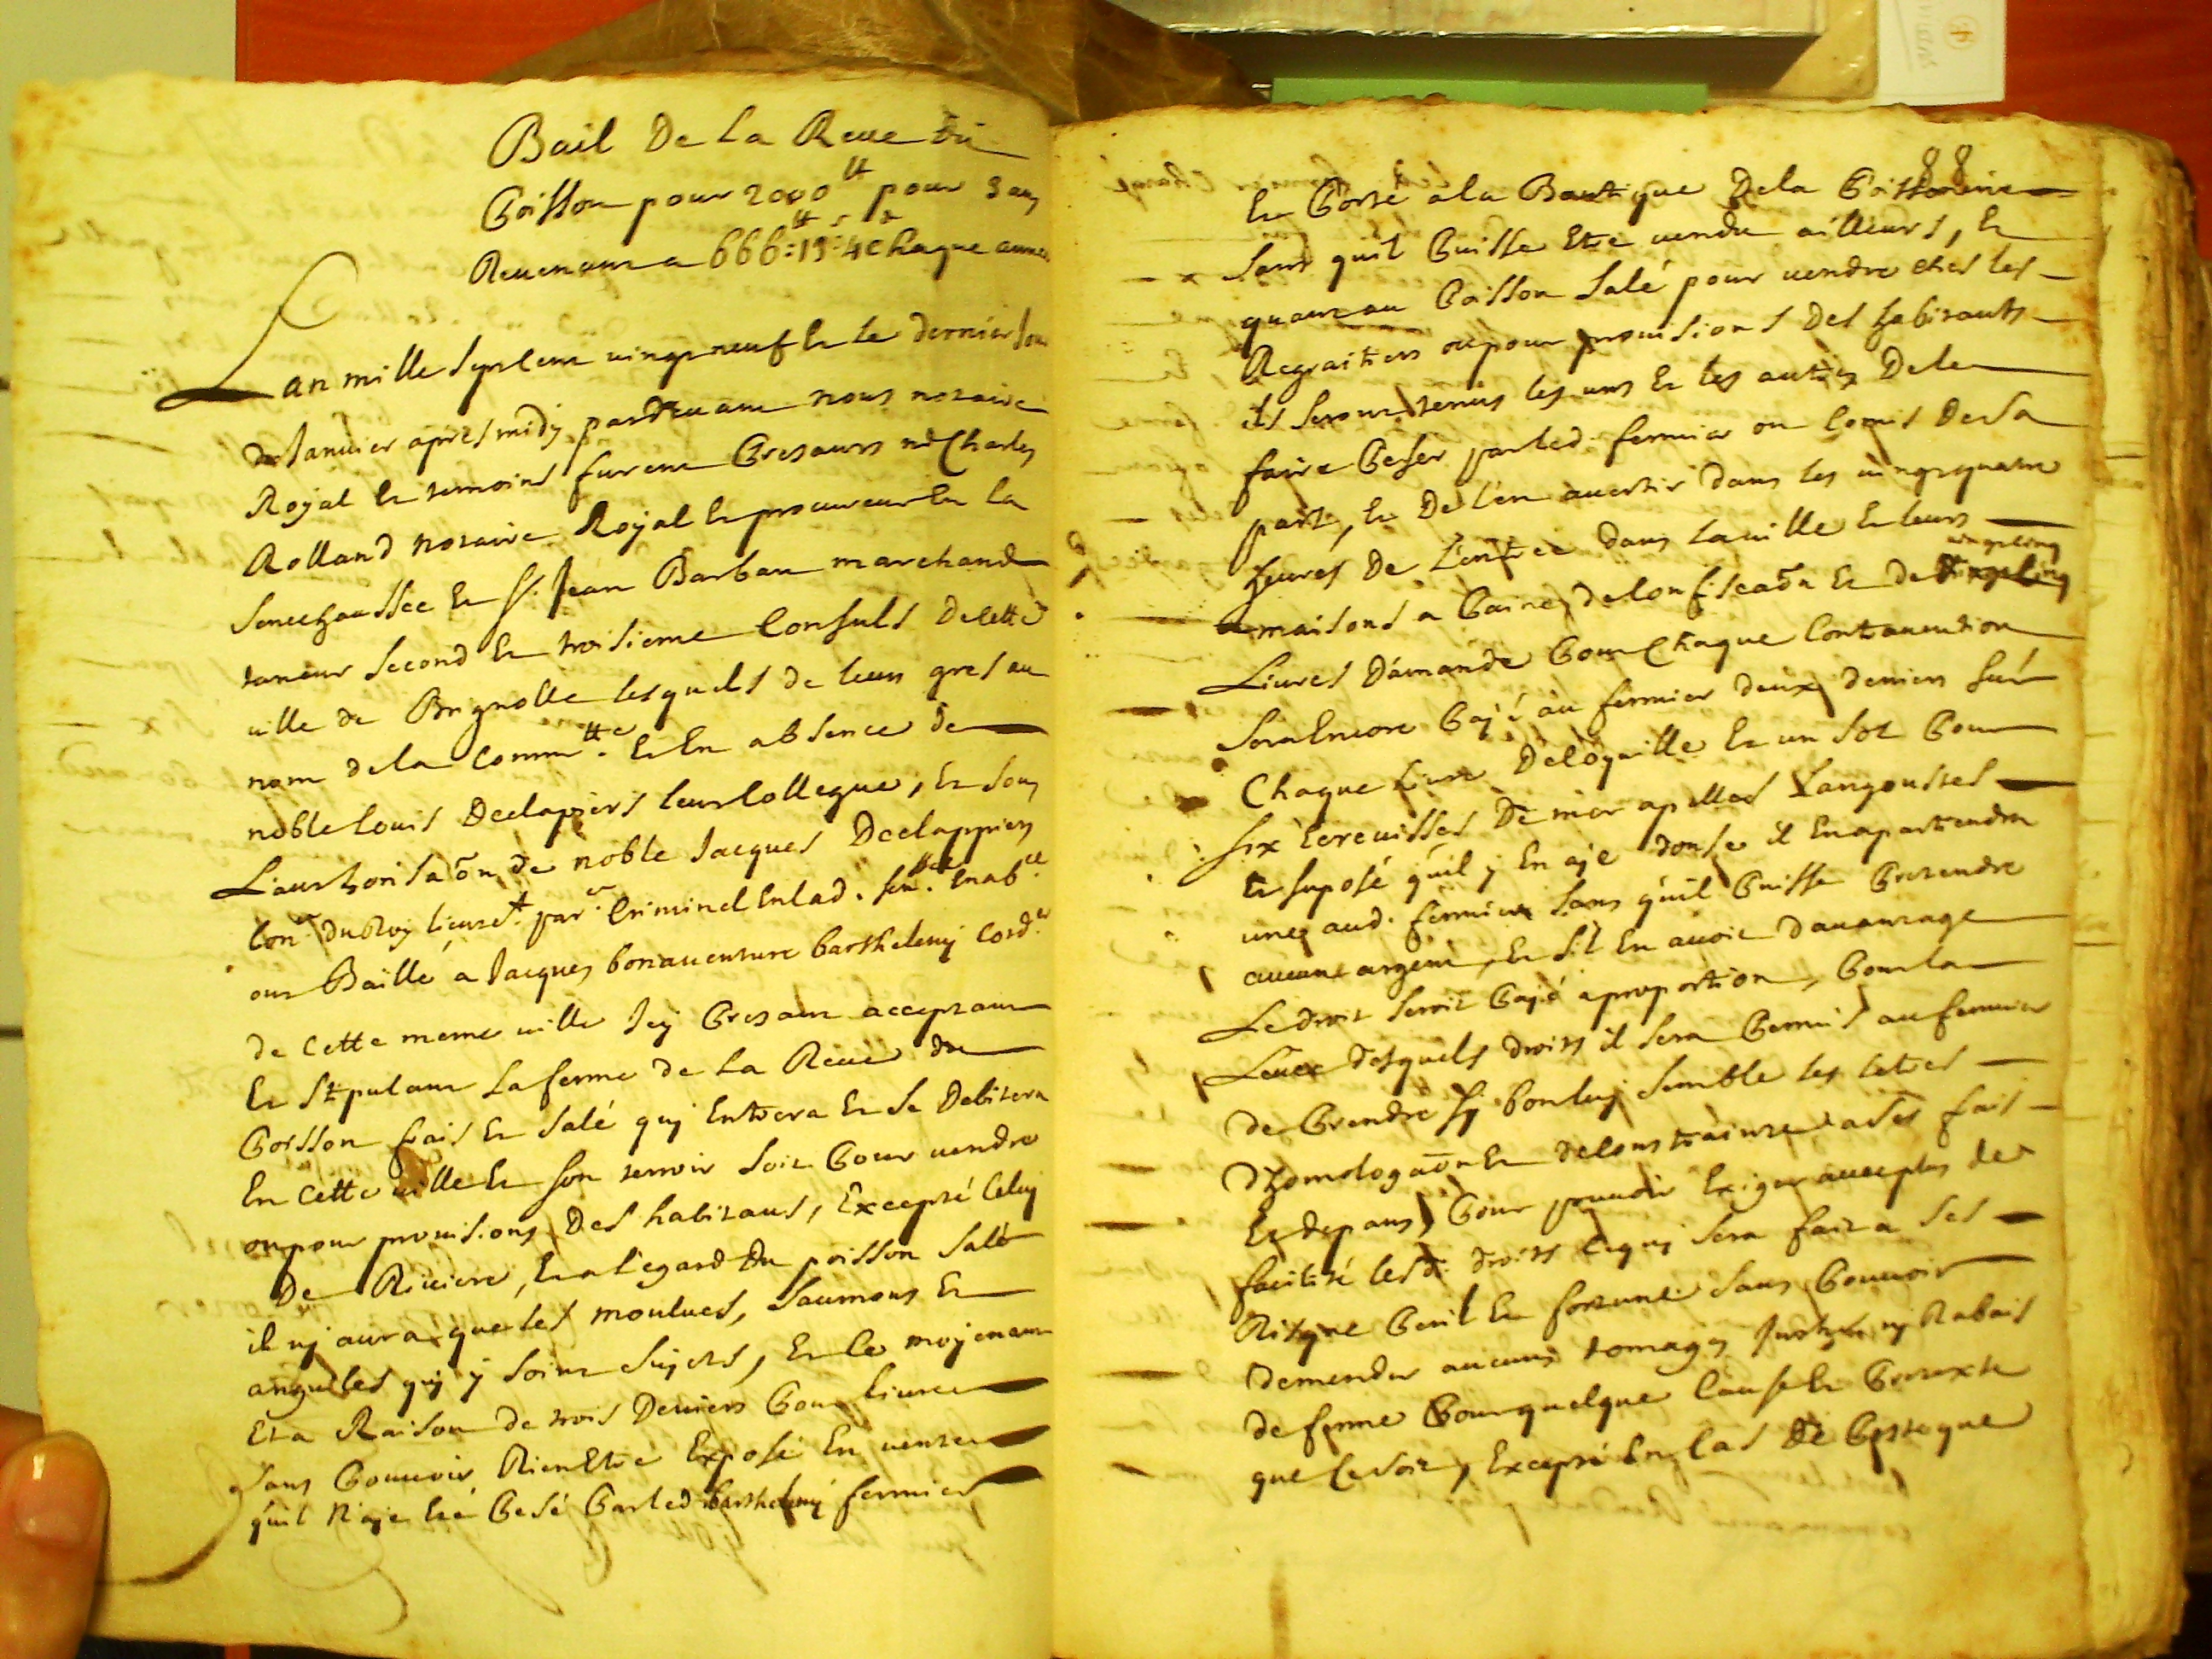 Bail De La Reve du
Poisson pour 2000 tt pour 3 ans
Revenant a 666 tt : 13 s : 4 d chaque année
Lan mille septcent vingtneuf & le dernier jour
de Janvier apres midy pardevant nous notaire
Royal & temoins furent presants me Charles
Rolland notaire Royal & procureur En la
Senechaussée & Sr. Jean Barbau marchand
taneur second & troisieme Consuls De cette
ville de Brignolle lesquels de leurs gres au
nom de la Comm.tté & En absence de
noble louis Declapiers leur Collegue, & sous
L'authorisaõn de noble Jacques Declappiers
Con.er du Roy lieute.t par.er Criminel En lad. sen.ée En ab.ce
ont Baillé a Jacques bonaventure barthelemy Cord.er
de cette meme ville Icy presant acceptant
& Stipulant La ferme de La Reve du
Poisson frais & salé quy Entrera & se Debitera
En cette ville & son terroir soit pour vendre
ou pour provisions Des habitans, Excepté Celuy
De Riviere, & a l'egard Du poisson salé
il ny aura que les moulues, saumons &
anguilles quy y soint sujets, & le moyenant
Et a Raison de trois Deniers pour livre
sans pouvoir Rien Etre Exposé En vente
quil n'aye Eté pesé par led barthelemy fermier
88
& porté a la Boutique De la poissonnerie
sans quil puisse Etre vendu ailleurs, &
quant au poisson salé pour vendre ches les
Regraitiers ou pour provisions Des habitants
ils seront tenus les uns & les autres De le
faire peser par led. fermier ou Comis De sa
part, & De l'en avertir Dans les vingtquatre
heures De L'entrée Dans la ville & leurs
maisons a paine de Confiscaõn & de vingtcinq
Livres D'amande pour Chaque Contravention
sera Encore payé au fermier deux deniers sur
Chaque livre De Coquille & un sol pour
six Ecrevisses De mer apellés Langoustes
& suposé qu'il y En aye douse il En apartiendra
une aud. fermier sans quil puisse pretendre
aucune argent, & s'il En avoit davantage
Le droit seroit payé a proportion, pour la
Levée desquels droits il sera permis au fermier
de prendre sy bon luy semble les letres
D'homologaõn & de Contrainte a ses frais
& depans, pour pouvoir Exiger avec plus de
facilité lesd. droits Ce quy sera fait a ses
Risque peril & fortune sans pouvoir
demander aucuns Rabais
de ferme pour quelque Cause & pretexte
que Ce soit, Excepté En Cas De peste que